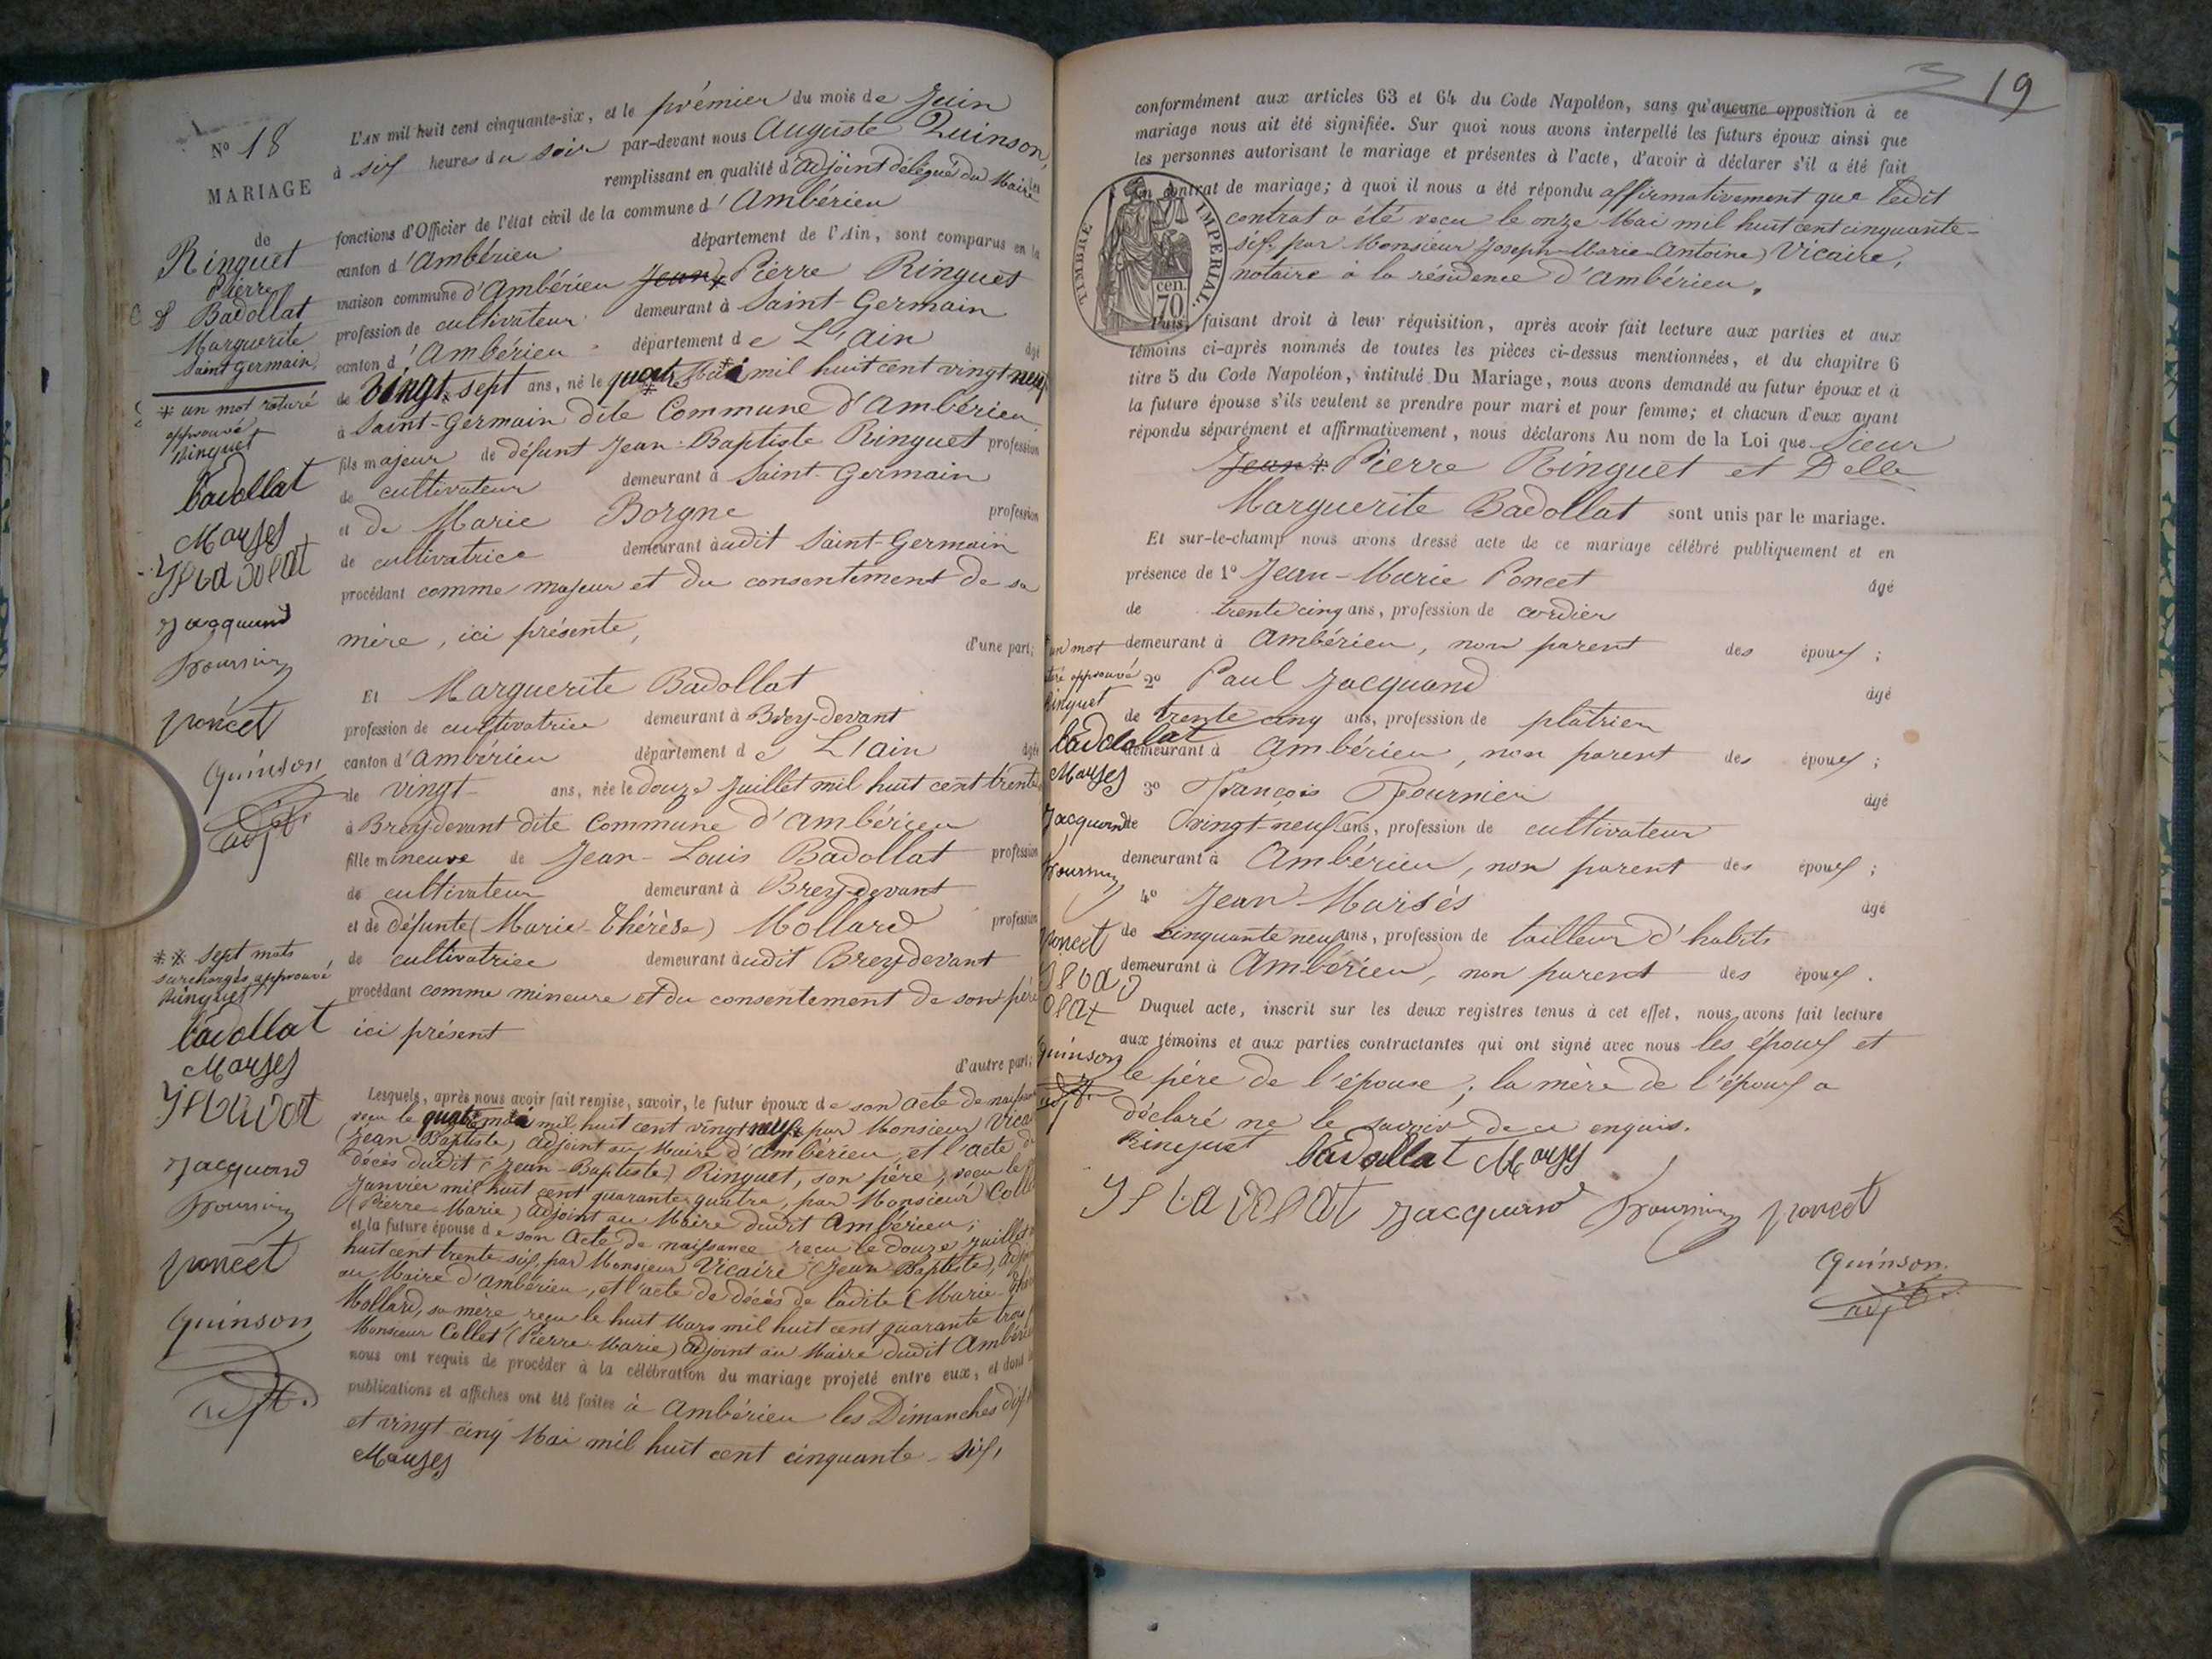 N° 18
MARIAGE
de
Ringuet
Pierre
& Badollat
Marguerite
Saint Germain
* un mot raturé
approuvé
Ringuet
badollat
Marses
Jacquand
fournier
poncet
Quinson
adjt.
** sept mots
surchargés approuvé
Ringuet
badollat
Marses
Jacquand
fournier
poncet
Quinson
adjt.
L'AN mil huit cent cinquante-six, et le prémier du mois de Juin
à six heures du soir par-devant nous Auguste Quinson,
remplissant en qualité d'adjoint délégué du Maire les
fonctions d'Officier de l'état civil de la commune d'Ambérieu
canton d'Ambérieu département de l'Ain, sont comparus en la
maison commune d'Ambérieu Jean * Pierre Ringuet
profession de cultivateur demeurant à Saint-Germain
canton d'Ambérieu département de L'Ain âgé
de vingt-sept ans, né le quatre Mai mil huit cent vingt neuf
à Saint-Germain dite Commune d'Ambérieu
fils majeur de défunt Jean-Baptiste Ringuet profession
de cultivateur demeurant à Saint-Germain
et de Marie Borgne profession
de cultivatrice demeurant audit Saint-Germain
procédant comme majeur et du consentement de sa
mère, ici présente, d'une part;
Et Marguerite Badollat
profession de cultivatrice demeurant à Brey-devant
canton d'Ambérieu département de L'ain âgée
de vingt ans, née le douze Juillet mil huit cent trente
à Brey-devant dite Commune d'Ambérieu
fille mineure de Jean-Louis Badollat profession
de cultivateur demeurant à Brey-devant
et de défunte (Marie-Thérèse) Mollard profession
de cultivatrice demeurant audit Brey-devant
procédant comme mineure et du consentement de son père
ici présent
d'autre part;
Lesquels, après nous avoir fait remise, savoir, le futur époux de son acte de naissance
reçu le quatre mai mil huit cent vingt neuf par Monsieur Vica
(Jean-Baptiste) adjoint au Maire d'ambérieu, et l'acte de
décès dudit (Jean-Baptiste) Ringuet, son père, reçu le
Janvier mil huit cent quarante quatre, par Monsieur Colle
(Pierre-Marie) adjoint au Maire dudit Ambérieu;
et la future épouse de son acte de naissance reçu le douze Juillet
huit cent trente six, par Monsieur Vicaire (Jean-Baptiste), adj
au Maire d'ambérieu, et l'acte de décès de ladite (Marie-Thé
Mollard, sa mère, reçu le huit Mars mil huit cent quarante trois
Monsieur Collet (Pierre-Marie) adjoint au Maire dudit Ambérieu
nous ont requis de procéder à la célébration du mariage projeté entre eux, et dont
publications et affiches ont été faites à Ambérieu les Dimanches dix
et vingt-cinq Mai mil huit cent cinquante-six,
Marses
19
conformément aux articles 63 et 64 du Code Napoléon, sans qu'aucune opposition à ce
mariage nous ait été signifiée. Sur quoi nous avons interpellé les futurs époux ainsi que
les personnes autorisant le mariage et présentes à l'acte, d'avoir à déclarer s'il a été fait
un contrat de mariage; à quoi il nous a été répondu affirmativement que ledit
contrat a été reçu le onze Mai mil huit cent cinquante-
six, par Monsieur Joseph-Marie-Antoine Vicaire,
notaire à la résidence d'Ambérieu.
TIMBRE IMPERIAL.
70 cen.
Puis, faisant droit à leur réquisition, après avoir fait lecture aux parties et aux
témoins ci-après nommés de toutes les pièces ci-dessus mentionnées, et du chapitre 6
titre 5 du Code Napoléon, intitulé Du Mariage, nous avons demandé au futur époux et à
la future épouse s'ils veulent se prendre pour mari et pour femme; et chacun d'eux ayant
répondu séparément et affirmativement, nous déclarons Au nom de la Loi que Sieur
Jean * Pierre Ringuet et Delle
Marguerite Badollat sont unis par le mariage.
Et sur-le-champ nous avons dressé acte de ce mariage célébré publiquement et en
présence de 1° Jean-Marie Poncet âgé
de trente cinq ans, profession de cordier
demeurant à Ambérieu, non parent des époux;
2° Paul Jacquand âgé
de trente cinq ans, profession de plâtrier
demeurant à Ambérieu, non parent des époux;
3° François Fournier âgé
de vingt-neuf ans, profession de cultivateur
demeurant à Ambérieu, non parent des époux;
4° Jean Marsés âgé
de cinquante neuf ans, profession de tailleur d'habits
demeurant à Ambérieu, non parent des époux.
Duquel acte, inscrit sur les deux registres tenus à cet effet, nous avons fait lecture
aux témoins et aux parties contractantes qui ont signé avec nous les époux et
le père de l'épouse; la mère de l'époux a
déclaré ne le savoir de ce enquis.
Ringuet badollat Marses
Jacquand fournier poncet
Quinson.
adjt.
un mot
approuvé
Ringuet
badollat
Marses
Jacquand
fournier
poncet
Quinson
adjt.